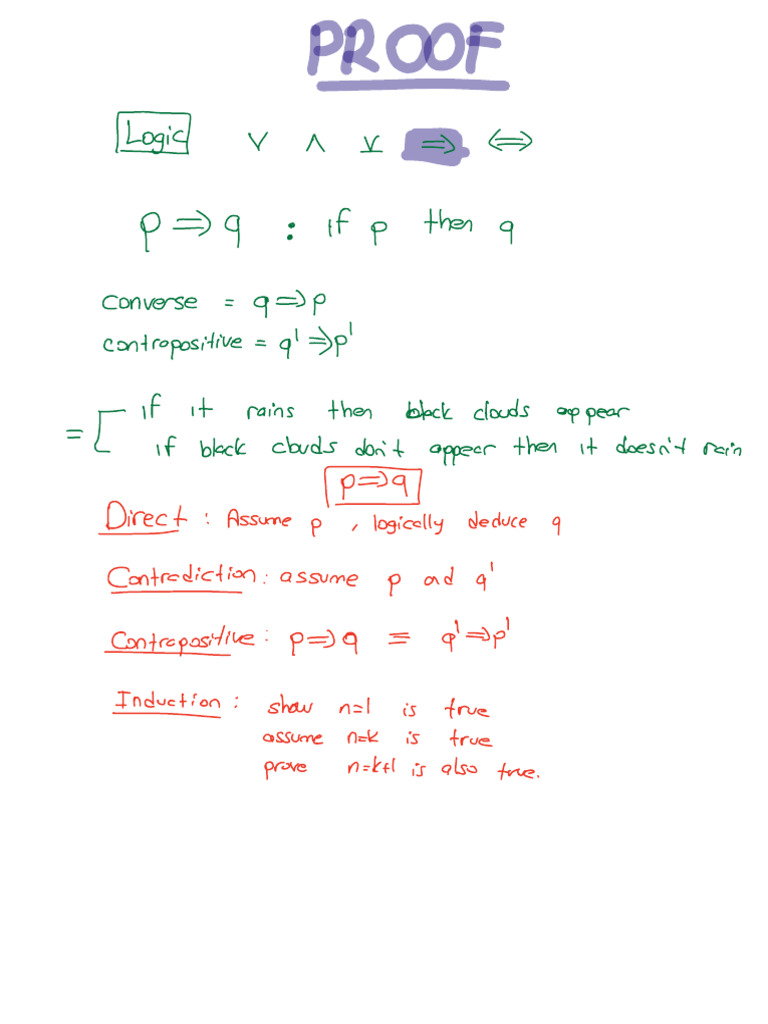 PROOF
Logic ∨ ∧ ⊻ ⇒ ⇔
p ⇒ q : if p then q
converse = q ⇒ p
contrapositive = q' ⇒ p'
= if it rains then black clouds appear
if black clouds don't appear then it doesn't rain
p ⇒ q
Direct : Assume p , logically deduce q
Contradiction : assume p ad q'
Contrapositive : p ⇒ q ≡ q' ⇒ p'
Induction : show n=1 is true
assume n=k is true
prove n=k+1 is also true.